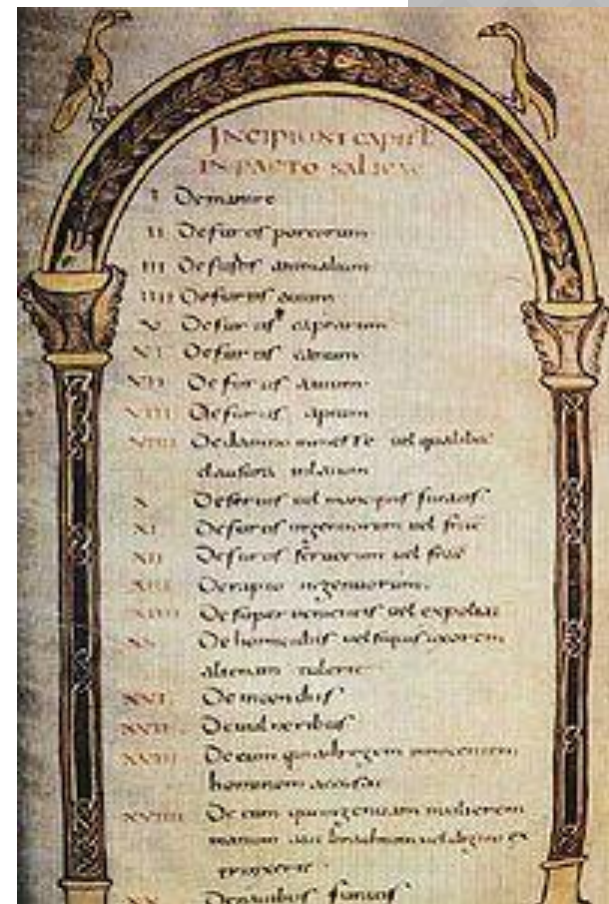 INCIPIUNT CAPIT
IN PACTO SALICAE
I De mannire
II De furtis porcorum
III De furtis animalium
IIII De furtis ouium
V De furtis caprarum
VI De furtis canum
VII De furtis auium
VIII De furtis apium
VIIII De damno in messe uel qualibet
clausura inlatum
X De seruis uel mancipiis furatis
XI De furtis ingenuorum uel frac
XII De furtis seruorum uel frac
XIII De rapto ingenuorum
XIIII De superuenientis uel expoliat
XV De homicidiis uel si quis uxorem
alienam tulerit
XVI De incendiis
XVII De uulneribus
XVIII De eum qui ad regem innocentem
hominem accusat
XVIIII De eum qui ingenuam mulierem
manum aut brachium uel digitum ex
trinxerit
XX De nauibus furatis